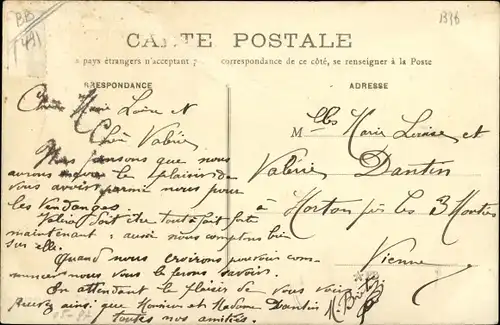 BB
7491
B36
CARTE POSTALE
pays étrangers n'acceptent pas correspondance de ce côté, se renseigner à la Poste
RRESPONDANCE
ADRESSE
Chère Marie Louise et
Chère Valérie
Nous pensons que nous
aurons encore le plaisir de
vous avoir parmi nous pour
les Vendanges.
Valérie doit être tout à fait forte
maintenant : aussi nous comptons bien
sur elle.
Quand nous croirons pouvoir com-
mencer nous vous le ferons savoir.
En attendant le plaisir de vous voir
recevez ainsi que Monsieur et Madame Dantin
toutes nos amitiés.
Mlles Marie Louise et
Valérie Dantin
à Morton près les 3 Moutiers
Vienne